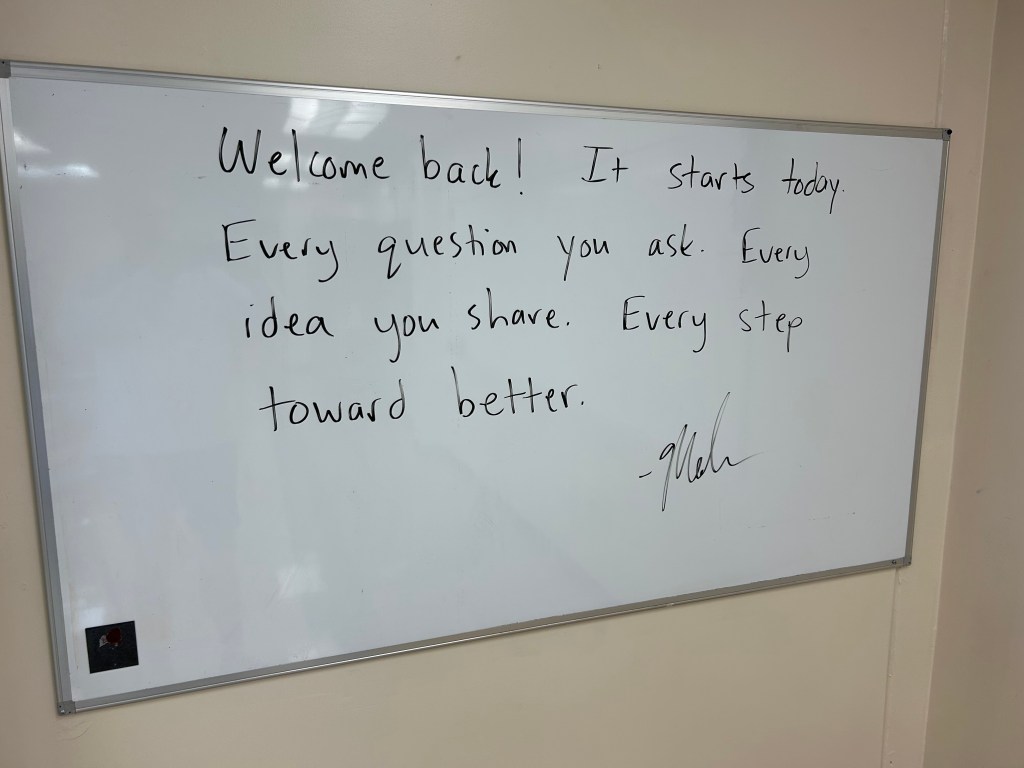 Welcome back! It starts today.
Every question you ask. Every
idea you share. Every step
toward better.